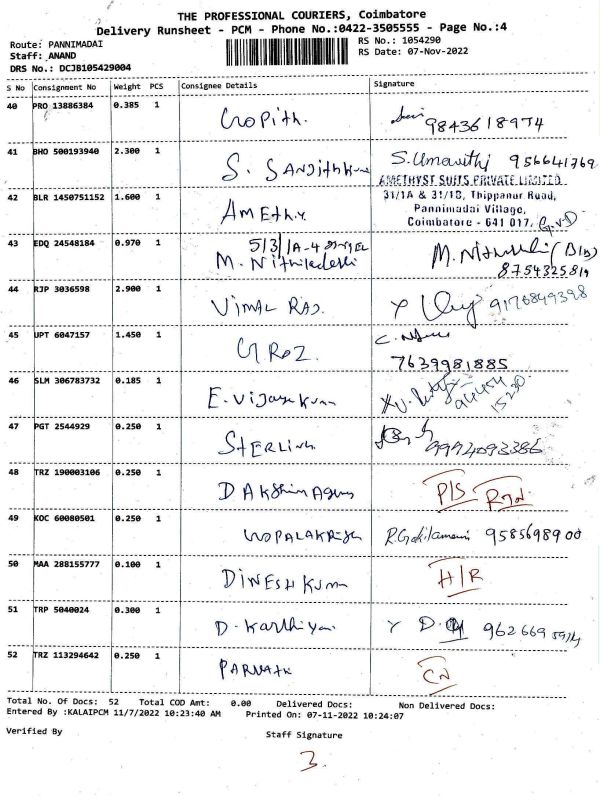 THE PROFESSIONAL COURIERS, Coimbatore
Delivery Runsheet - PCM - Phone No.:0422-3505555 - Page No.:4
Route: PANNIMADAI RS No.: 1054290
Staff: ANAND RS Date: 07-Nov-2022
DRS No.: DCJB105429004
S No Consignment No Weight PCS Consignee Details Signature
40 PRO 13886384 0.385 1 Gopith. 9843618974
41 BHO 500193940 2.300 1 S. Umavathi 956641769
AMETHYST SUITS PRIVATE LIMITED
42 BLR 1450751152 1.600 1 Amethy 31/1A & 31/1B, Thippanur Road,
Pannimadai Village,
Coimbatore - 641 017. G.V.D
43 EDQ 24548184 0.970 1 5/3/1A-4
M. Nithiladevi
8754325819
44 RJP 3036598 2.900 1 VIMAL RAJ. 9176849398
45 UPT 6047157 1.450 1
7639981885
46 SLM 306783732 0.185 1 E. Vijayakumar
47 PGT 2544929 0.250 1 STERLING 9994093386
48 TRZ 190003106 0.250 1 P/S
49 KOC 60080501 0.250 1 GOPALAKRISH 9585698900
50 MAA 288155777 0.100 1 DINESH Kumar H/R
51 TRP 5040024 0.300 1 D. Karthiyan
52 TRZ 113294642 0.250 1 PARVATH CN
Total No. Of Docs: 52 Total COD Amt: 0.00 Delivered Docs: Non Delivered Docs:
Entered By :KALAIPCM 11/7/2022 10:23:40 AM Printed On: 07-11-2022 10:24:07
Verified By Staff Signature
3.